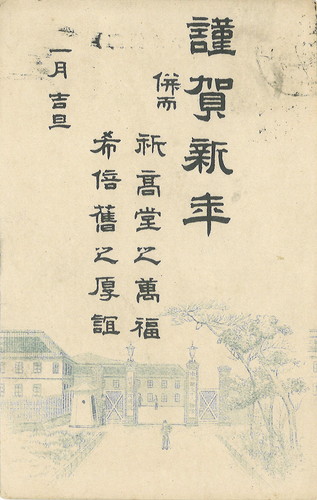 謹賀新年
併而
祈高堂之萬福
希倍舊之厚誼
一月吉旦